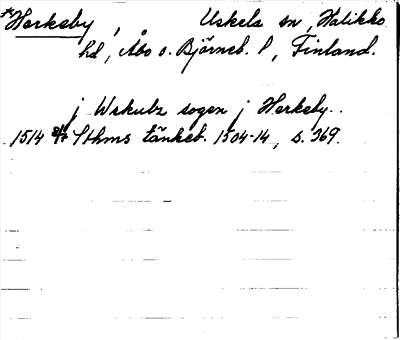 *Herkeby, Uskela sn, Halikko
hd, Åbo o. Björneb. l, Finland.
j Wskulz sogen j Herkeby..
1514 Sthms tänkeb. 1504-14, s. 369.